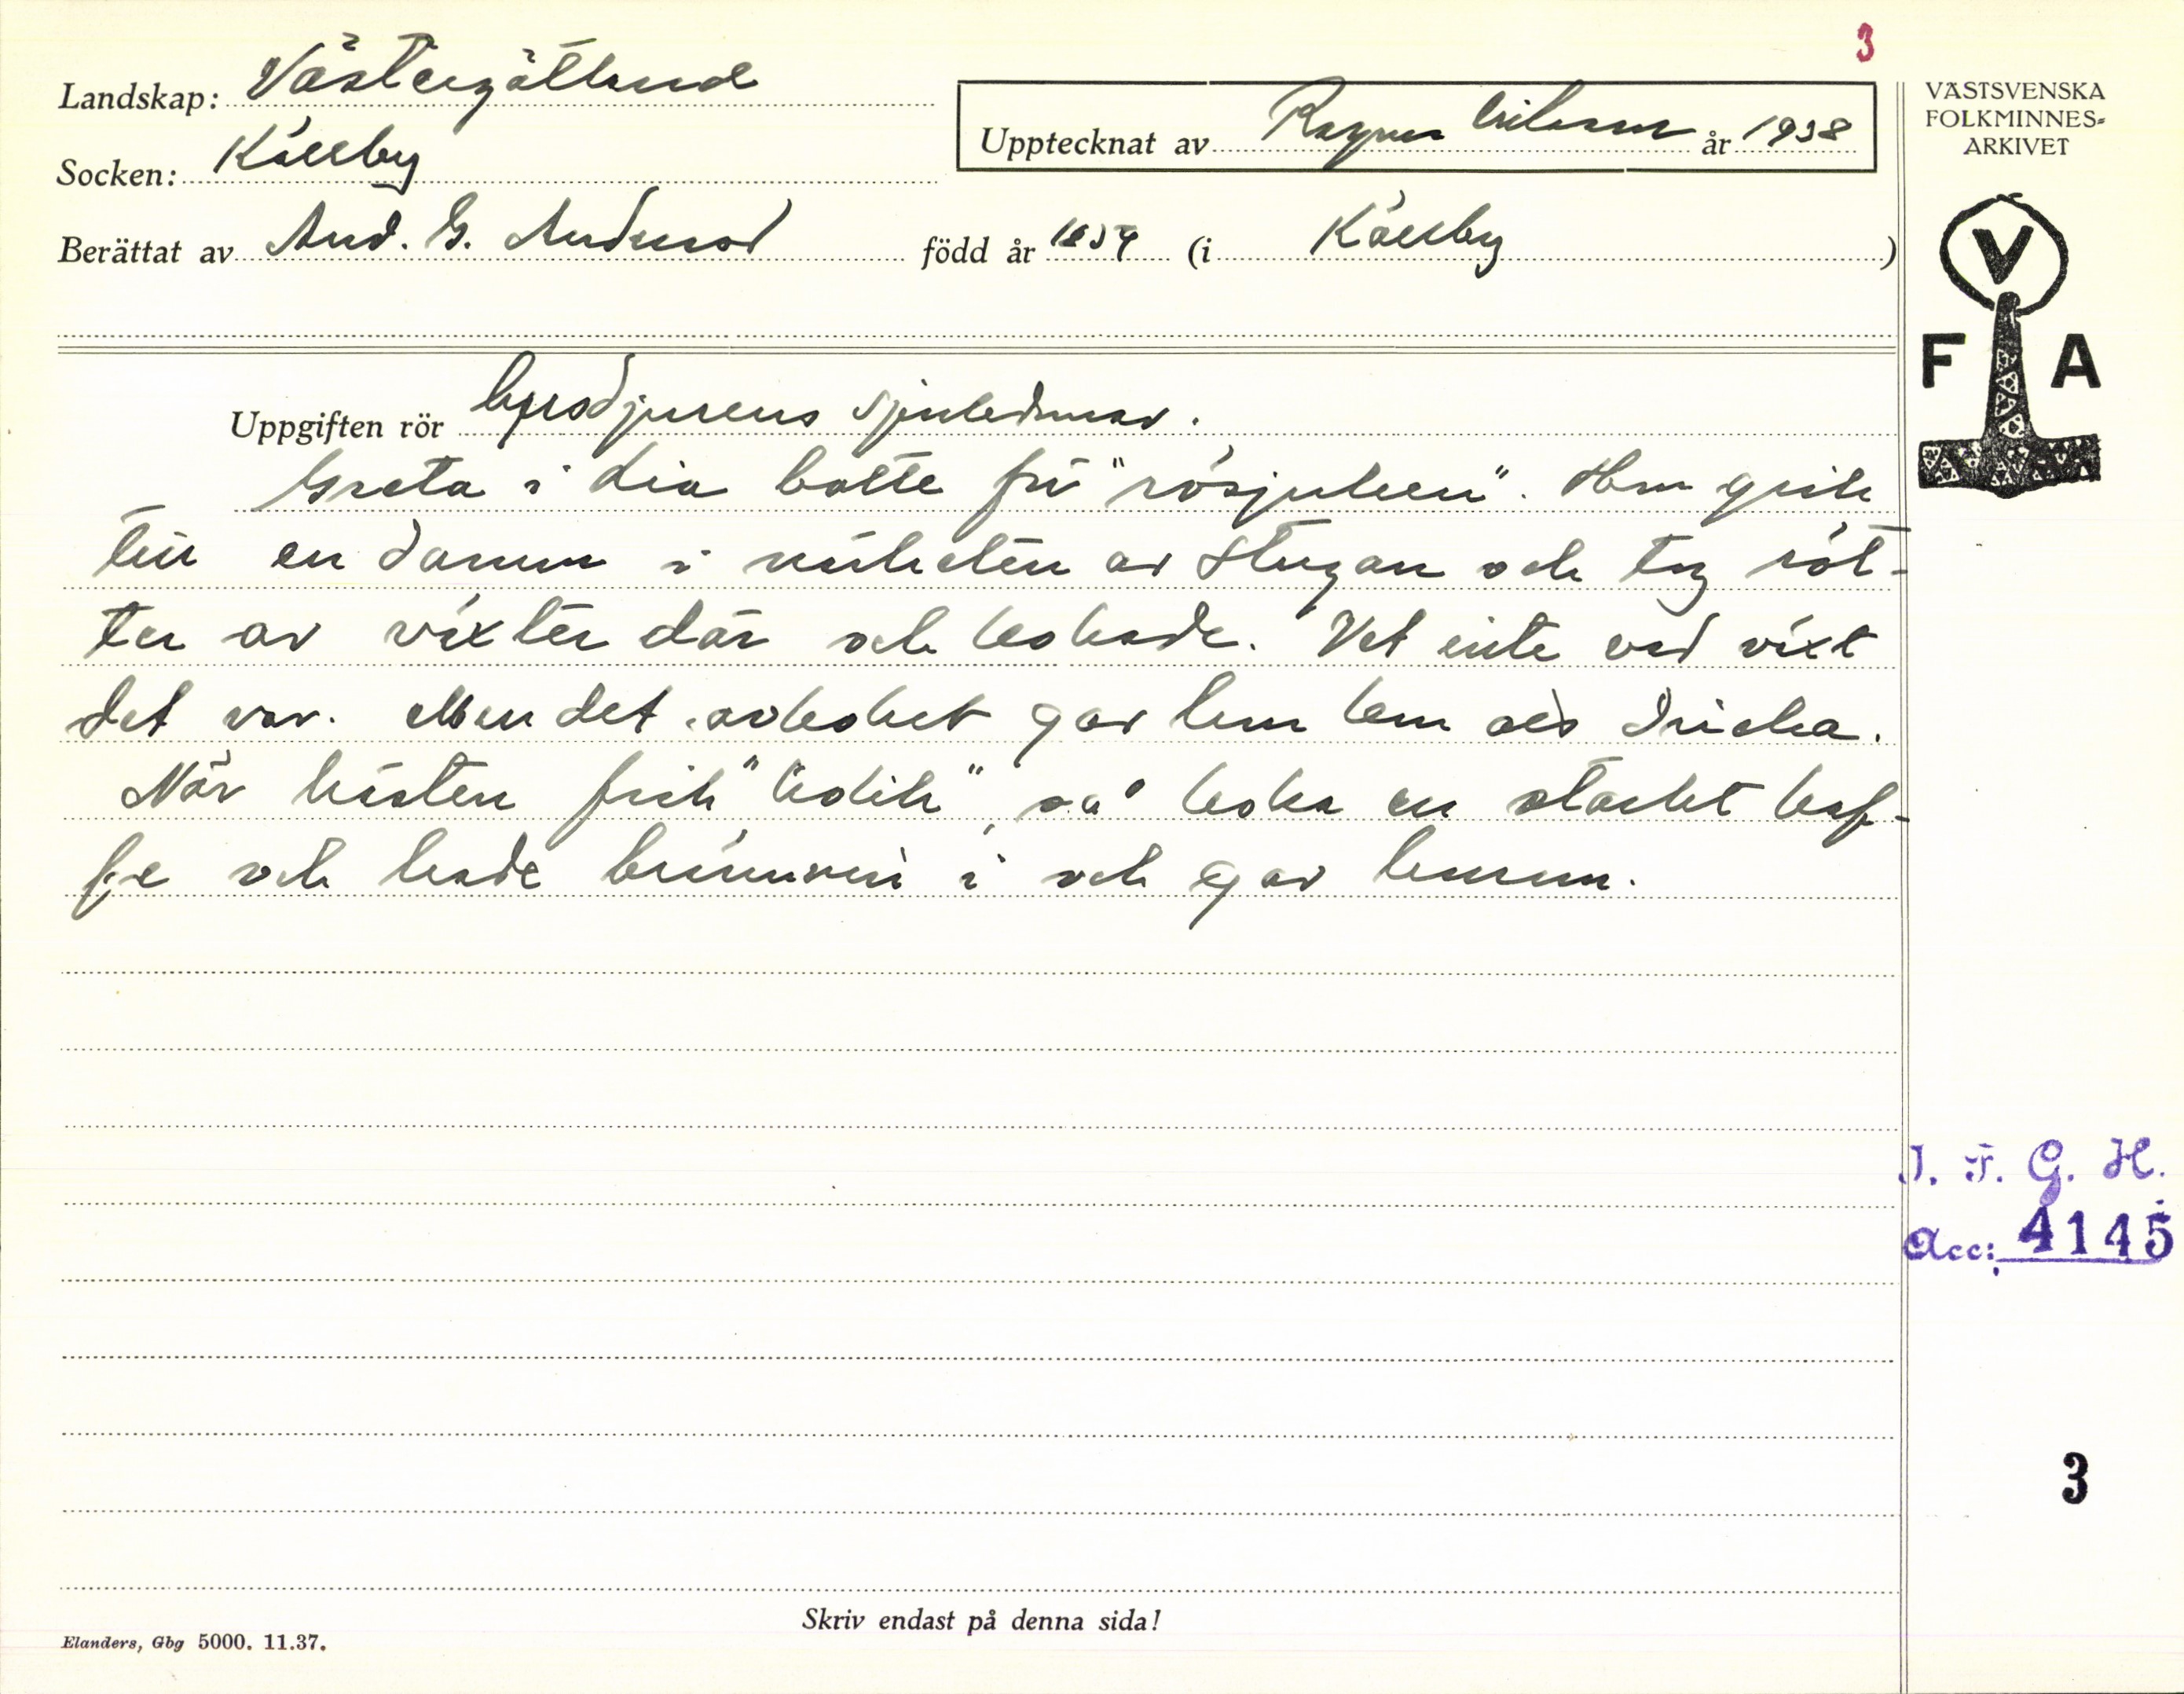 3
Landskap: Västergötland
Upptecknat av Ragnar Nilsson år 1938
Socken: Källby
Berättat av And. G. Andersson född år (i Källby)
VÄSTSVENSKA
FOLKMINNES-
ARKIVET
V
F A
Uppgiften rör Husdjurens sjukdomar.
Greta i Lia botte för "rösjuken". Hon gick
till en damm i närheten av stugan och tog röt-
ter av växter där och kokade. Vet inte vad växt
det var. Men det avkoket gav hon kon att dricka.
När hästen fick "kolik", så koka en starkt kaf-
fe och hade brännvin i och gav honom.
J. F. G. H.
Acc: 4145
3
Skriv endast på denna sida!
Elanders, Gbg 5000. 11.37.